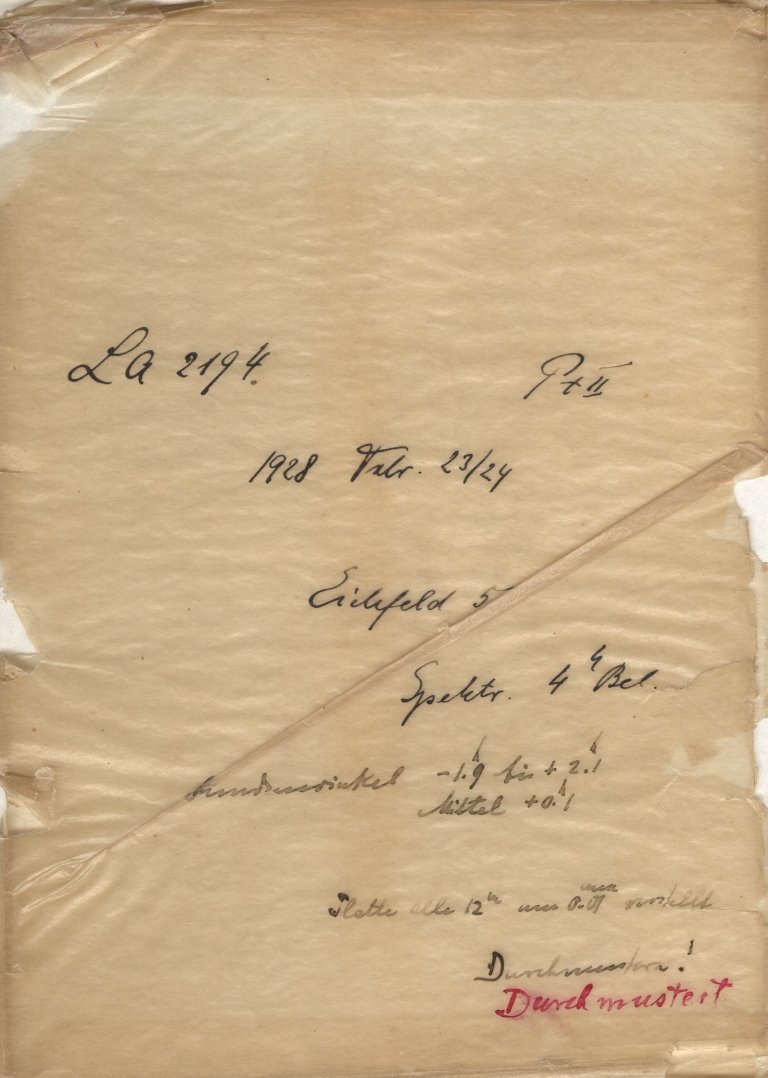 LA 2194. P+II
1928 Febr. 23/24
Eichfeld 5
Spektr. 4ʰ Bel.
Stundenwinkel -1.ʰ9 bis + 2.ʰ1
Mittel +0.ʰ1
Platte alle 12ᵐ um 0.01 mm verstellt
Durchmustern!
Durchmustert